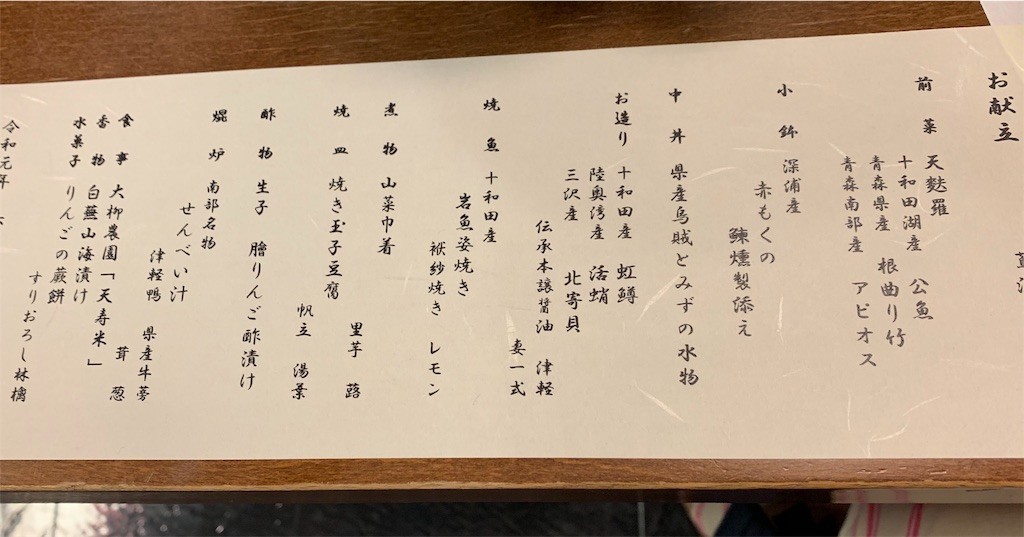 お献立
前菜 天麩羅
十和田湖産 公魚
青森県産 根曲り竹
青森南部産 アピオス
小鉢 深浦産
赤もくの
鰊燻製添え
中丼 県産烏賊とみずの水物
お造り 十和田産 虹鱒
陸奥湾産 活蛸
三沢産 北寄貝
伝承本譲醤油 津軽
妻一式
焼魚 十和田産
岩魚姿焼き
袱紗焼き レモン
煮物 山菜巾着
里芋 蕗
焼皿 焼き玉子豆腐
帆立 湯葉
酢物 生子 膾りんご酢漬け
焜炉 南部名物
せんべい汁
津軽鴨 県産牛蒡
茸 葱
食事 大柳農園「天寿米」
香物 白蕪山海漬け
水菓子 りんごの蕨餅
すりおろし林檎
令和元年